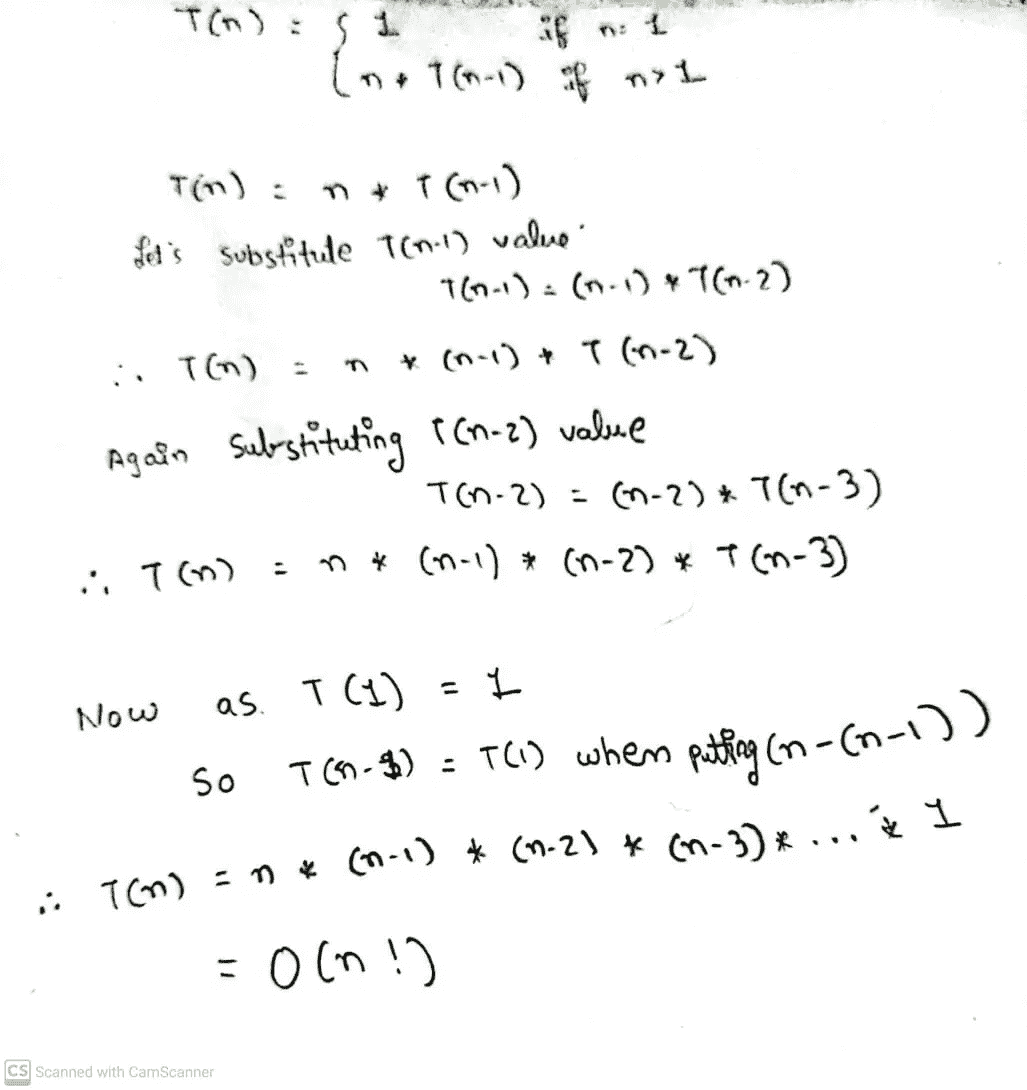 T(n) = { 1 if n = 1
n * T(n-1) if n > 1
T(n) = n * T(n-1)
Let's substitute T(n-1) value
T(n-1) = (n-1) * T(n-2)
∴ T(n) = n * (n-1) * T(n-2)
Again Substituting T(n-2) value
T(n-2) = (n-2) * T(n-3)
∴ T(n) = n * (n-1) * (n-2) * T(n-3)
Now as T(1) = 1
So = T(1) when putting (n-(n-1))
∴ T(n) = n * (n-1) * (n-2) * (n-3) * ... * 1
= O(n!)
CS Scanned with CamScanner